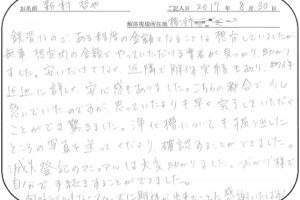 お名前 新村 哲也 ご記入日 2017年 8月 30日
解体現場所在地
鉄骨なので、ある程度の金額となることは想定していましたが
無事 想定内の金額でやっていただける業者が見つかり、助かりま
した。安いだけでなく、近隣で解体実績もあり、物件
近辺に詳しく、安心感もありました。こちらの都合で少し
急いでいたのですが、思っていたよりも早く完了していただく
ことができ驚きました。浄化槽についても掘り出した
ところの写真を送ってくださり、確認することができました。
滅失登記のマニュアルは大変助かりました。おかげ様で
自分で手続きすることができました。